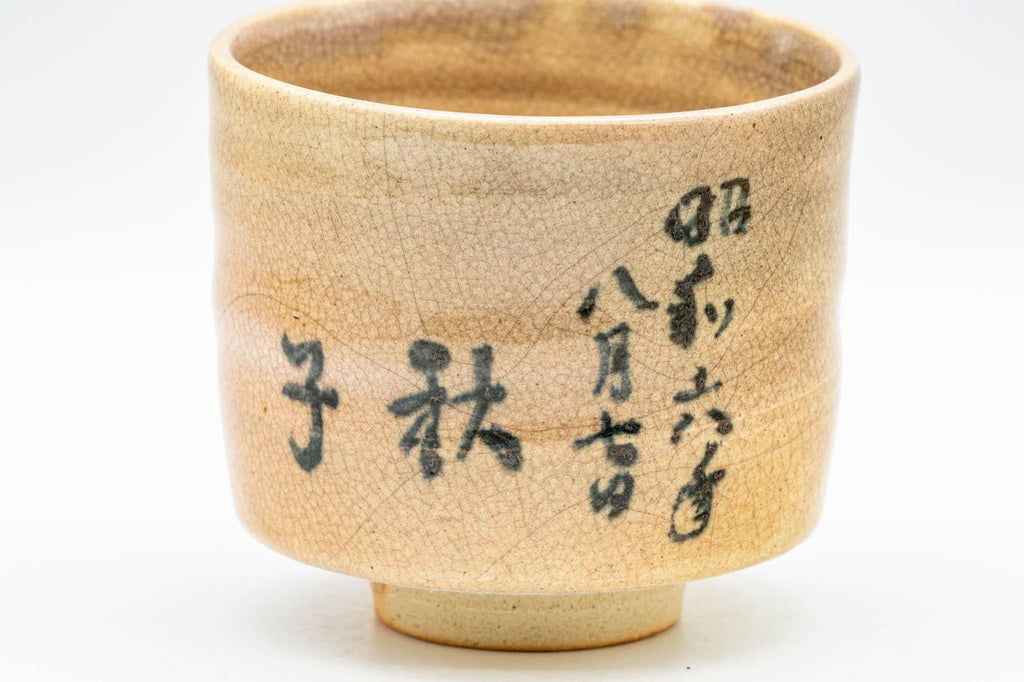 昭和六年
八月七日
秋子